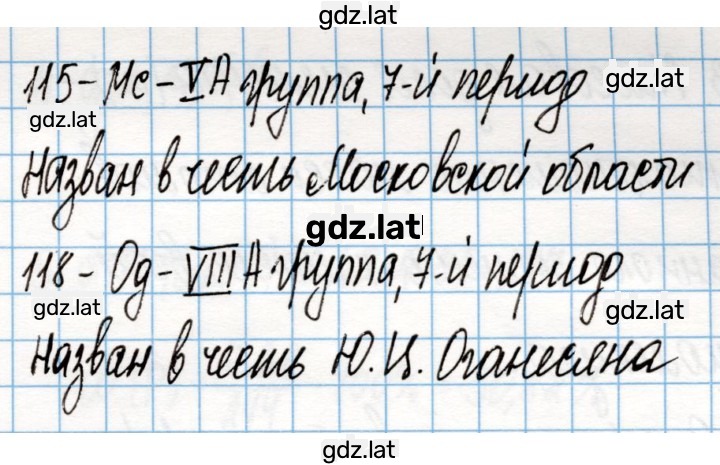 gdz.lat
115-Mc-VA группа, 7-й период
gdz.lat
gdz.lat
Назван в честь Московской области
gdz.lat
118-Og-VIIIA группа, 7-й период
gdz.lat
gdz.lat
Назван в честь Ю.Ц. Оганесяна
gdz.lat